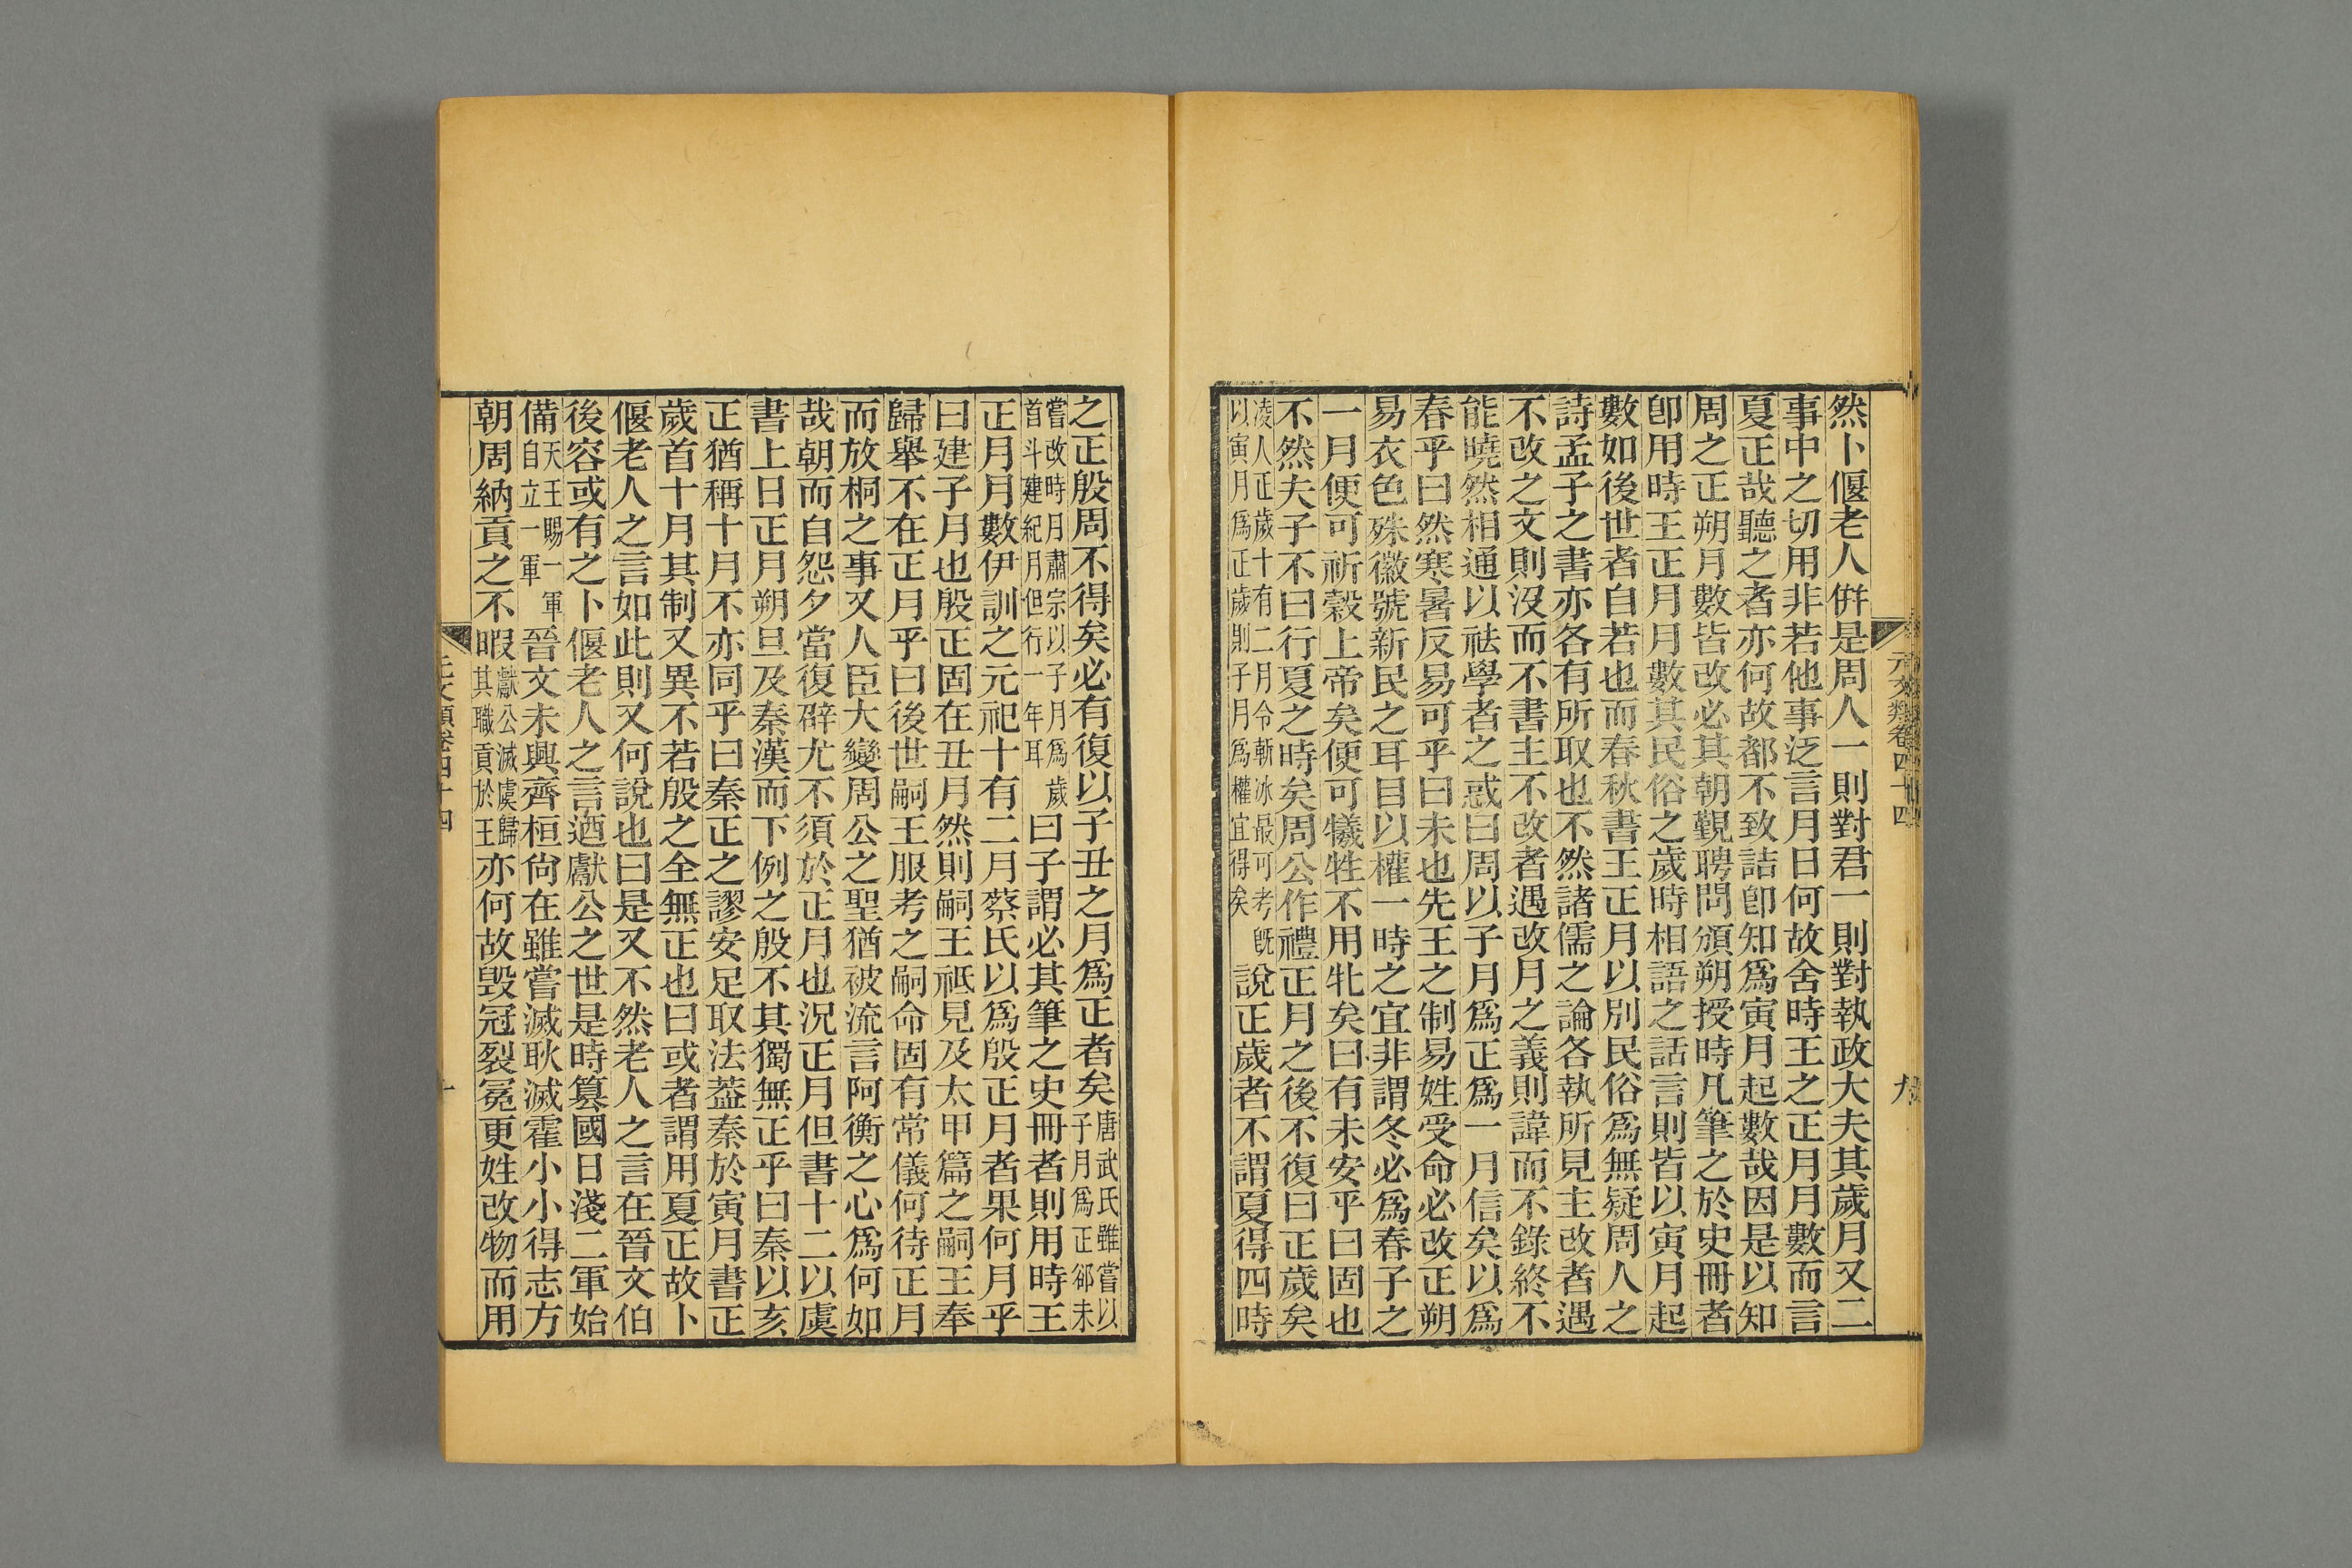 元文類卷四十四
九
然卜偃老人倂是周人一則對君一則對執政大夫其歲月又二
事中之切用非若他事泛言月日何故舍時王之正月月數而言
夏正哉聽之者亦何故都不致詰卽知爲寅月起數哉因是以知
周之正朔月數皆改必其朝覲聘問頒朔授時凡筆之於史冊者
卽用時王正月月數其民俗之歲時相語之話言則皆以寅月起
數如後世者自若也而春秋書王正月以別民俗爲無疑周人之
詩孟子之書亦各有所取也不然諸儒之論各執所見主改者遇
不改之文則沒而不書主不改者遇改月之義則諱而不錄終不
能曉然相通以祛學者之惑曰周以子月爲正爲一月信矣以爲
春乎曰然寒暑反易可乎曰未也先王之制易姓受命必改正朔
易衣色殊徽號新民之耳目以權一時之宜非謂冬必爲春子之
一月便可祈穀上帝矣便可犧牲不用牝矣曰有未安乎曰固也
不然夫子不曰行夏之時矣周公作禮正月之後不復曰正歲矣
凌人正歲十有二月令斬冰最可考旣
以寅月爲正歲則子月爲權宜得矣
說正歲者不謂夏得四時
之正殷周不得矣必有復以子丑之月爲正者矣
唐武氏雖嘗以
子月爲正郤未
嘗改時月肅宗以子月爲歲
首斗建紀月但行一年耳
曰子謂必其筆之史冊者則用時王
正月月數伊訓之元祀十有二月蔡氏以爲殷正月者果何月乎
曰建子月也殷正固在丑月然則嗣王祗見及太甲篇之嗣王奉
歸舉不在正月乎曰後世嗣王服考之嗣命固有常儀何待正月
而放桐之事又人臣大變周公之聖猶被流言阿衡之心爲何如
哉朝而自怨夕當復辟尤不須於正月也況正月但書十二以虞
書上日正月朔旦及秦漢而下例之殷不其獨無正乎曰秦以亥
正猶稱十月不亦同乎曰秦正之謬安足取法葢秦於寅月書正
歲首十月其制又異不若殷之全無正也曰或者謂用夏正故卜
偃老人之言如此則又何說也曰是又不然老人之言在晉文伯
後容或有之卜偃老人之言迺獻公之世是時簒國日淺二軍始
備
天王賜一軍
自立一軍
晉文未興齊桓尙在雖嘗滅耿滅霍小小得志方
朝周納貢之不暇
獻公滅虞歸
其職貢於王
亦何故毁冠裂冕更姓改物而用